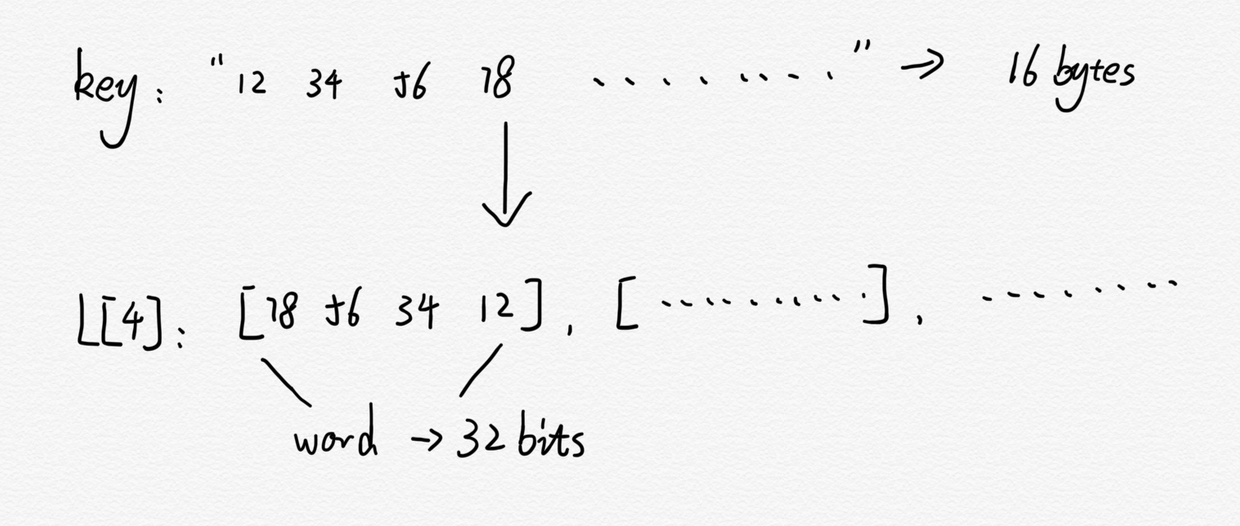 key: "12 34 56 78 ........." → 16 bytes
L[4]: [78 56 34 12], [..........], ........
word → 32 bits